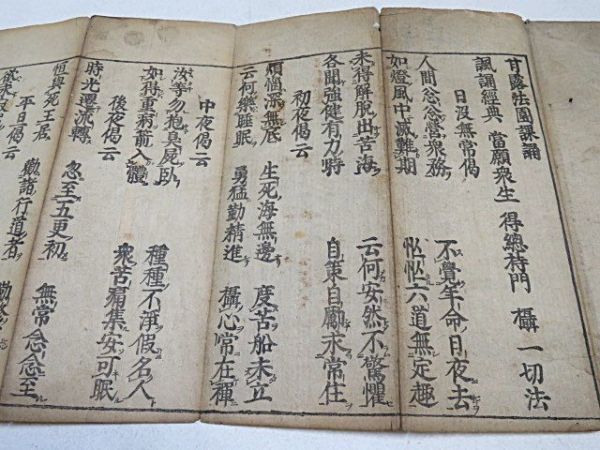 甘露法園課誦
諷誦經典 當願衆生 得總持門 攝一切法
日没無常偈
人間怱怱營衆務 不覺年命日夜去
如燈風中滅難期 忙忙六道無定趣
未得解脱出苦海 云何安然不驚懼
各聞強健有力時 自策自勵求常住
初夜偈云
煩惱深無底 生死海無邊 度苦船未立
云何樂睡眠 勇猛勤精進 攝心常在禪
中夜偈云
汝等勿抱臭屍臥 種種不淨假名人
如得重病箭入體 衆苦痛集安可眠
後夜偈云
時光遷流轉 忽至五更初 無常念念至
恒與死王居 勸諸行道者 勤修
平旦偈云